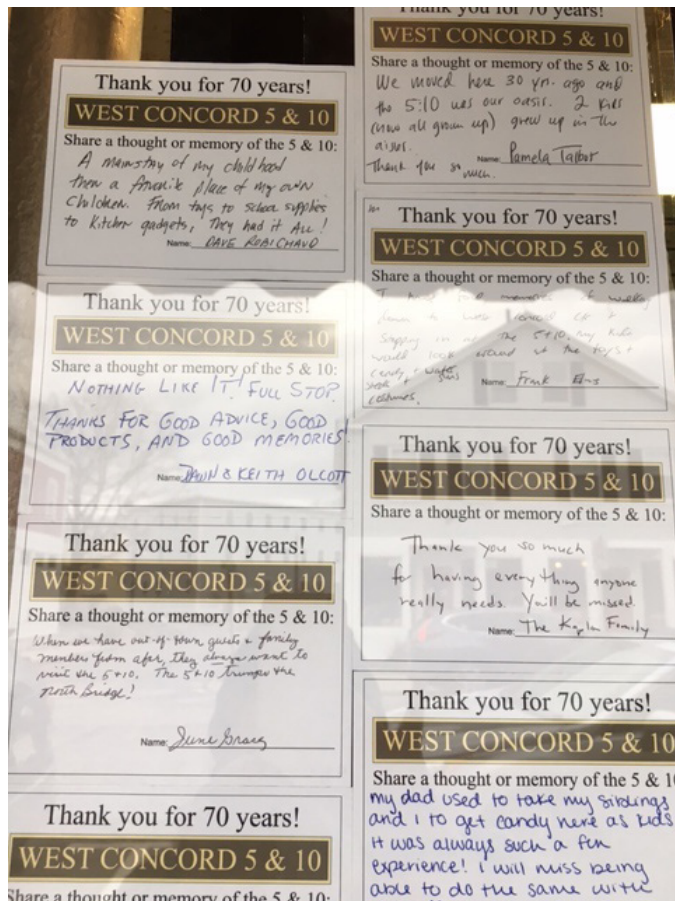 Thank you for 70 years!
WEST CONCORD 5 & 10
Share a thought or memory of the 5 & 10:
A mainstay of my childhood
then a favorite place of my own
children. From toys to school supplies
to kitchen gadgets, They had it All!
Name: DAVE ROBICHAUD
Thank you for 70 years!
WEST CONCORD 5 & 10
Share a thought or memory of the 5 & 10:
NOTHING LIKE IT! FULL STOP.
THANKS FOR GOOD ADVICE, GOOD
PRODUCTS, AND GOOD MEMORIES!
Name: DAWN & KEITH OLCOTT
Thank you for 70 years!
WEST CONCORD 5 & 10
Share a thought or memory of the 5 & 10:
When we have out-of-town guests & family
members from afar, they always want to
visit the 5 & 10. The 5 & 10 trumps the
North Bridge!
Name: June
Thank you for 70 years!
WEST CONCORD 5 & 10
Share a thought or memory of the 5 & 10:
Thank you for 70 years!
WEST CONCORD 5 & 10
Share a thought or memory of the 5 & 10:
We moved here 30 yrs. ago and
the 5:10 was our oasis. 2 kids
(now all grown up) grew up in the
aisles.
Thank you so
much.
Name: Pamela Talbot
Thank you for 70 years!
WEST CONCORD 5 & 10
Share a thought or memory of the 5 & 10:
I have fond memories of walking
down to West Concord
in at the 5+10. my kids
would look around at the toys +
candy + water guns
costumes.
Name: Frank
Thank you for 70 years!
WEST CONCORD 5 & 10
Share a thought or memory of the 5 & 10:
Thank you so much
for having everything anyone
really needs. You'll be missed.
Name: The Kaplan Family
Thank you for 70 years!
WEST CONCORD 5 & 10
Share a thought or memory of the 5 & 10
my dad used to take my siblings
and I to get candy here as kids
it was always such a fun
experience! I will miss being
able to do the same with